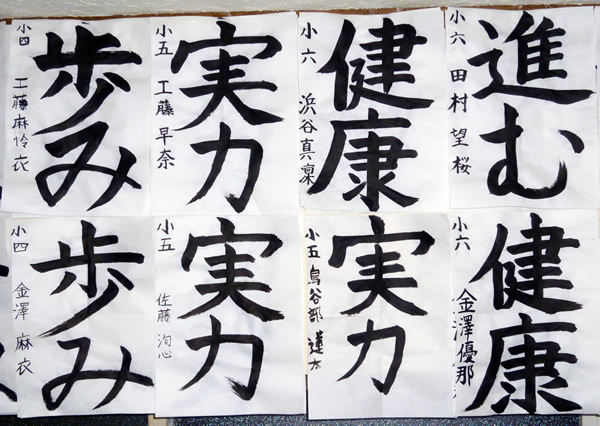 歩み
小四
工藤麻怜衣
実力
小五
工藤早奈
健康
小六
浜谷真凜
進む
小六
田村望桜
歩み
小四
金澤麻衣
実力
小五
佐藤洵心
実力
小五
鳥谷部蓮太
健康
小六
金澤優那